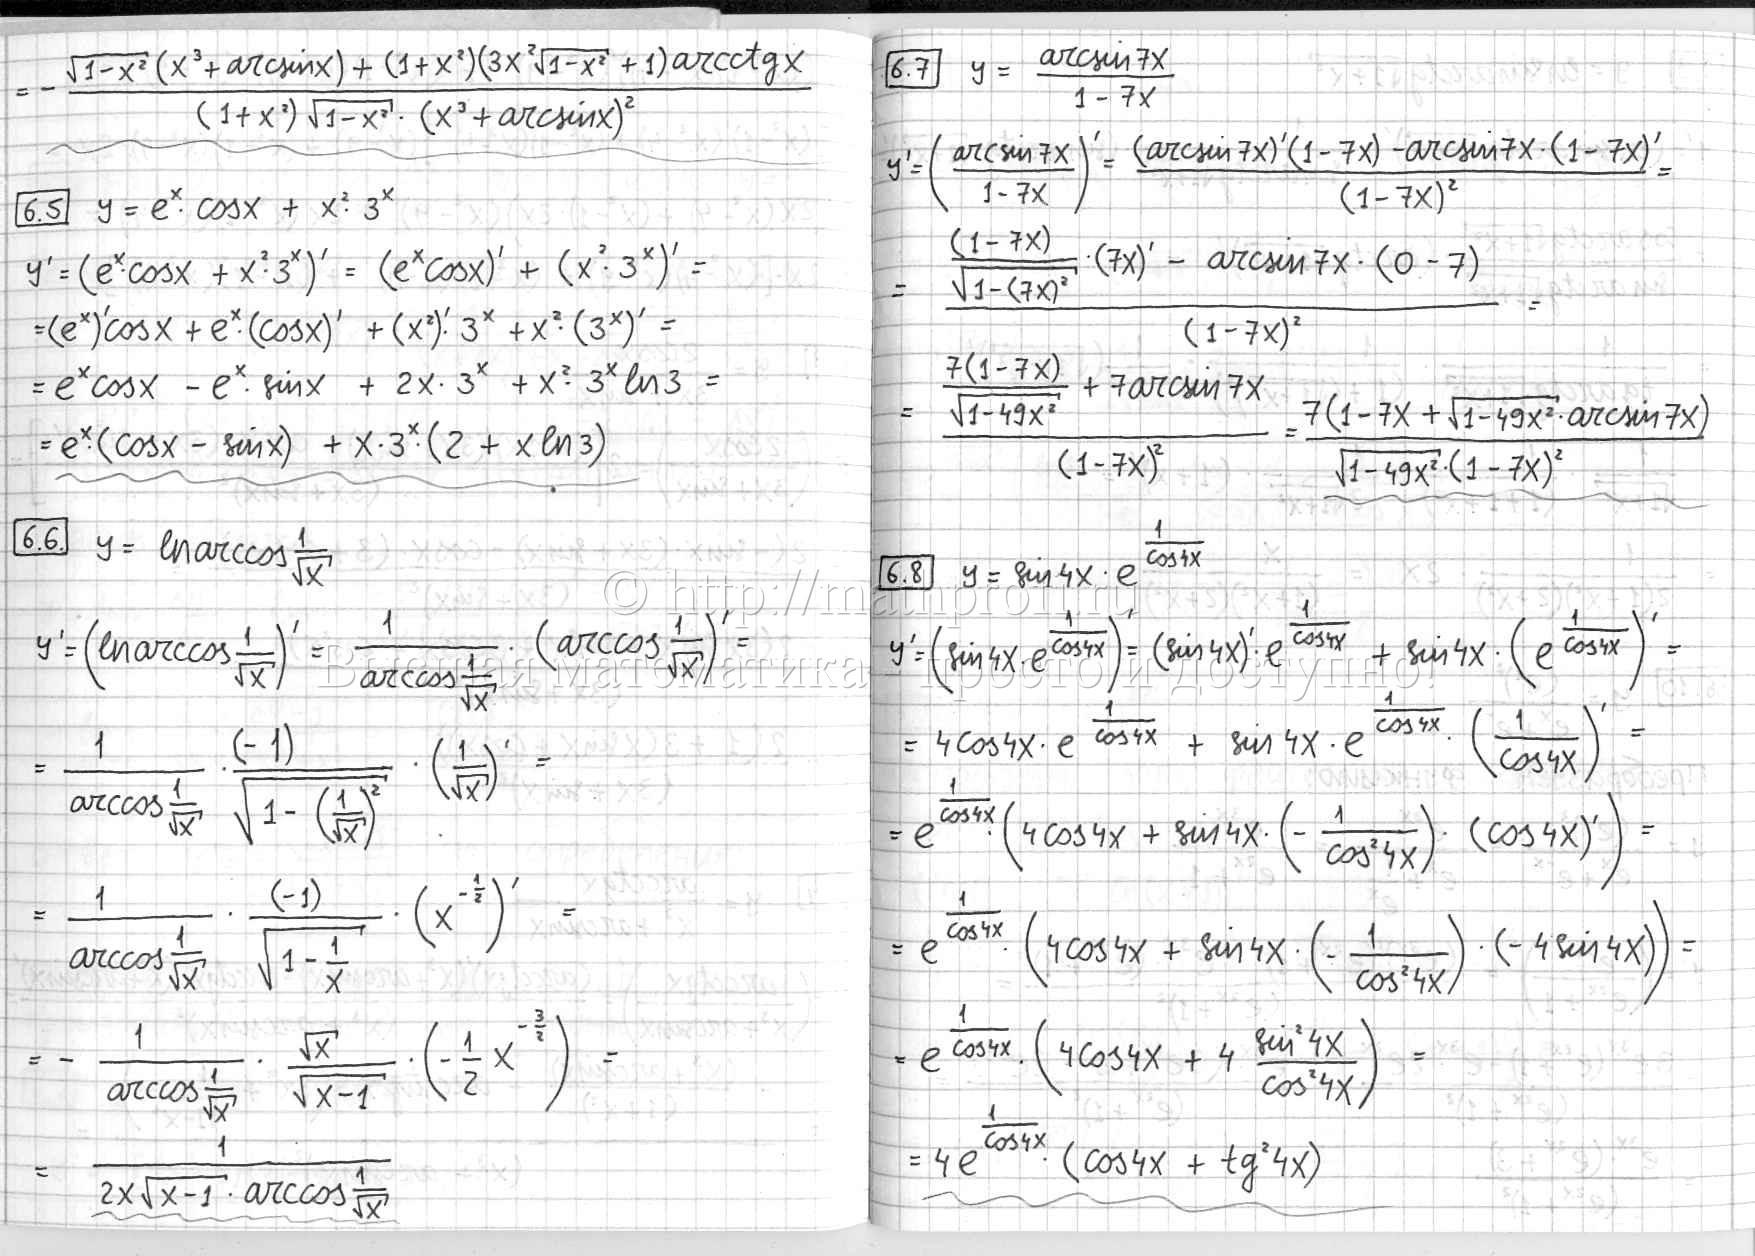 = - \frac{\sqrt{1-x^2}(x^3+arcsinx)+(1+x^2)(3x^2\sqrt{1-x^2}+1)arcctgx}{(1+x^2)\sqrt{1-x^2}\cdot(x^3+arcsinx)^2}
6.5 y = e^x·cosx + x^2·3^x
y' = (e^x·cosx + x^2·3^x)' = (e^x cosx)' + (x^2·3^x)' =
= (e^x)'cosx + e^x·(cosx)' + (x^2)'·3^x + x^2·(3^x)' =
= e^x cosx - e^x·sinx + 2x·3^x + x^2·3^x ln3 =
= e^x·(cosx - sinx) + x·3^x·(2 + x ln3)
6.6. y = ln arccos\frac{1}{\sqrt{x}}
y' = (ln arccos\frac{1}{\sqrt{x}})' = \frac{1}{arccos\frac{1}{\sqrt{x}}} · (arccos\frac{1}{\sqrt{x}})' =
= \frac{1}{arccos\frac{1}{\sqrt{x}}} · \frac{(-1)}{\sqrt{1-(\frac{1}{\sqrt{x}})^2}} · (\frac{1}{\sqrt{x}})' =
= \frac{1}{arccos\frac{1}{\sqrt{x}}} · \frac{(-1)}{\sqrt{1-\frac{1}{x}}} · (x^{-\frac{1}{2}})' =
= - \frac{1}{arccos\frac{1}{\sqrt{x}}} · \frac{\sqrt{x}}{\sqrt{x-1}} · (-\frac{1}{2}x^{-\frac{3}{2}}) =
= \frac{1}{2x\sqrt{x-1}·arccos\frac{1}{\sqrt{x}}}
6.7 y = \frac{arcsin7x}{1-7x}
y' = (\frac{arcsin7x}{1-7x})' = \frac{(arcsin7x)'(1-7x)-arcsin7x·(1-7x)'}{(1-7x)^2} =
= \frac{\frac{(1-7x)}{\sqrt{1-(7x)^2}}·(7x)' - arcsin7x·(0-7)}{(1-7x)^2} =
= \frac{\frac{7(1-7x)}{\sqrt{1-49x^2}} + 7arcsin7x}{(1-7x)^2} = \frac{7(1-7x+\sqrt{1-49x^2}·arcsin7x)}{\sqrt{1-49x^2}·(1-7x)^2}
6.8 y = sin4x·e^{\frac{1}{cos4x}}
y' = (sin4x·e^{\frac{1}{cos4x}})' = (sin4x)'·e^{\frac{1}{cos4x}} + sin4x·(e^{\frac{1}{cos4x}})' =
= 4cos4x·e^{\frac{1}{cos4x}} + sin4x·e^{\frac{1}{cos4x}}·(\frac{1}{cos4x})' =
= e^{\frac{1}{cos4x}}·(4cos4x + sin4x·(-\frac{1}{cos^2 4x})·(cos4x)') =
= e^{\frac{1}{cos4x}}·(4cos4x + sin4x·(-\frac{1}{cos^2 4x})·(-4sin4x)) =
= e^{\frac{1}{cos4x}}·(4cos4x + 4\frac{sin^2 4x}{cos^2 4x}) =
= 4e^{\frac{1}{cos4x}}·(cos4x + tg^2 4x)
© http://mathprofi.ru
Высшая математика - просто и доступно!